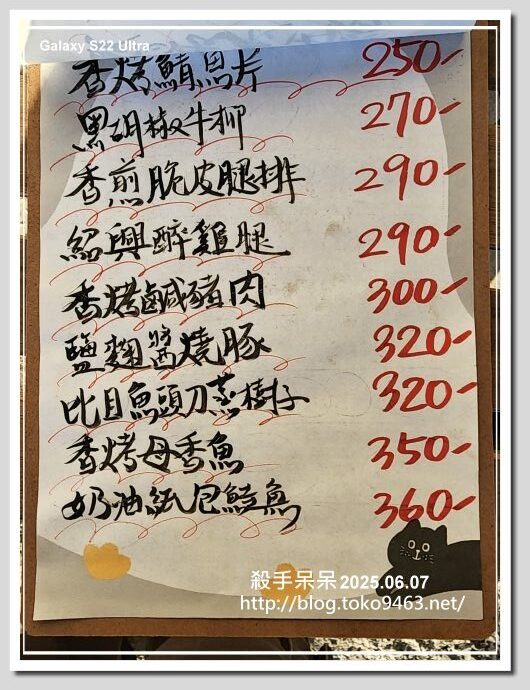 Galaxy S22 Ultra
香烤鯖魚片 250-
黑胡椒牛柳 270-
香煎脆皮腿排 290-
紹興醉雞腿 290-
香烤鹹豬肉 300-
鹽麴醬燒豚 320-
比目魚頭刀蒸樹子 320-
香烤母香魚 350-
奶油紙包鮭魚 360-
殺手呆呆 2025.06.07
http://blog.toko9463.net/